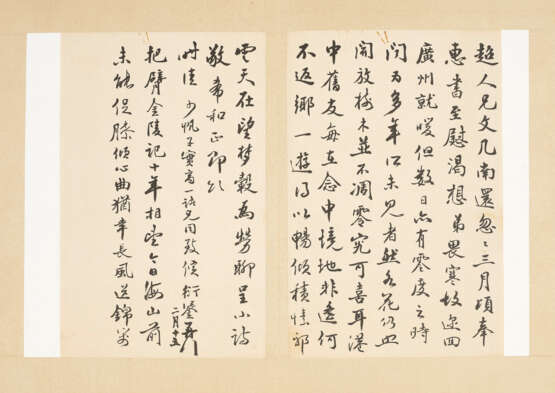 超人兄文几南還忽々三月頃奉
惠書至慰渴想弟畏寒故遂回
廣州就暖但数日亦有零度之時
为多年所未見者然各花仍
開放樹木並不凋零究可喜耳港
中舊友每在念中境地非遠何
不返鄉一遊得以暢傾積愫耶
雲天在望夢轂為勞聊呈小詩
敬希和正即頌
時佳 少帆子實高一諸兄同致候 衍鎏
二月十五
把臂金陵記十年相望今日海山前
未能促膝傾心曲猶幸長風送錦箋